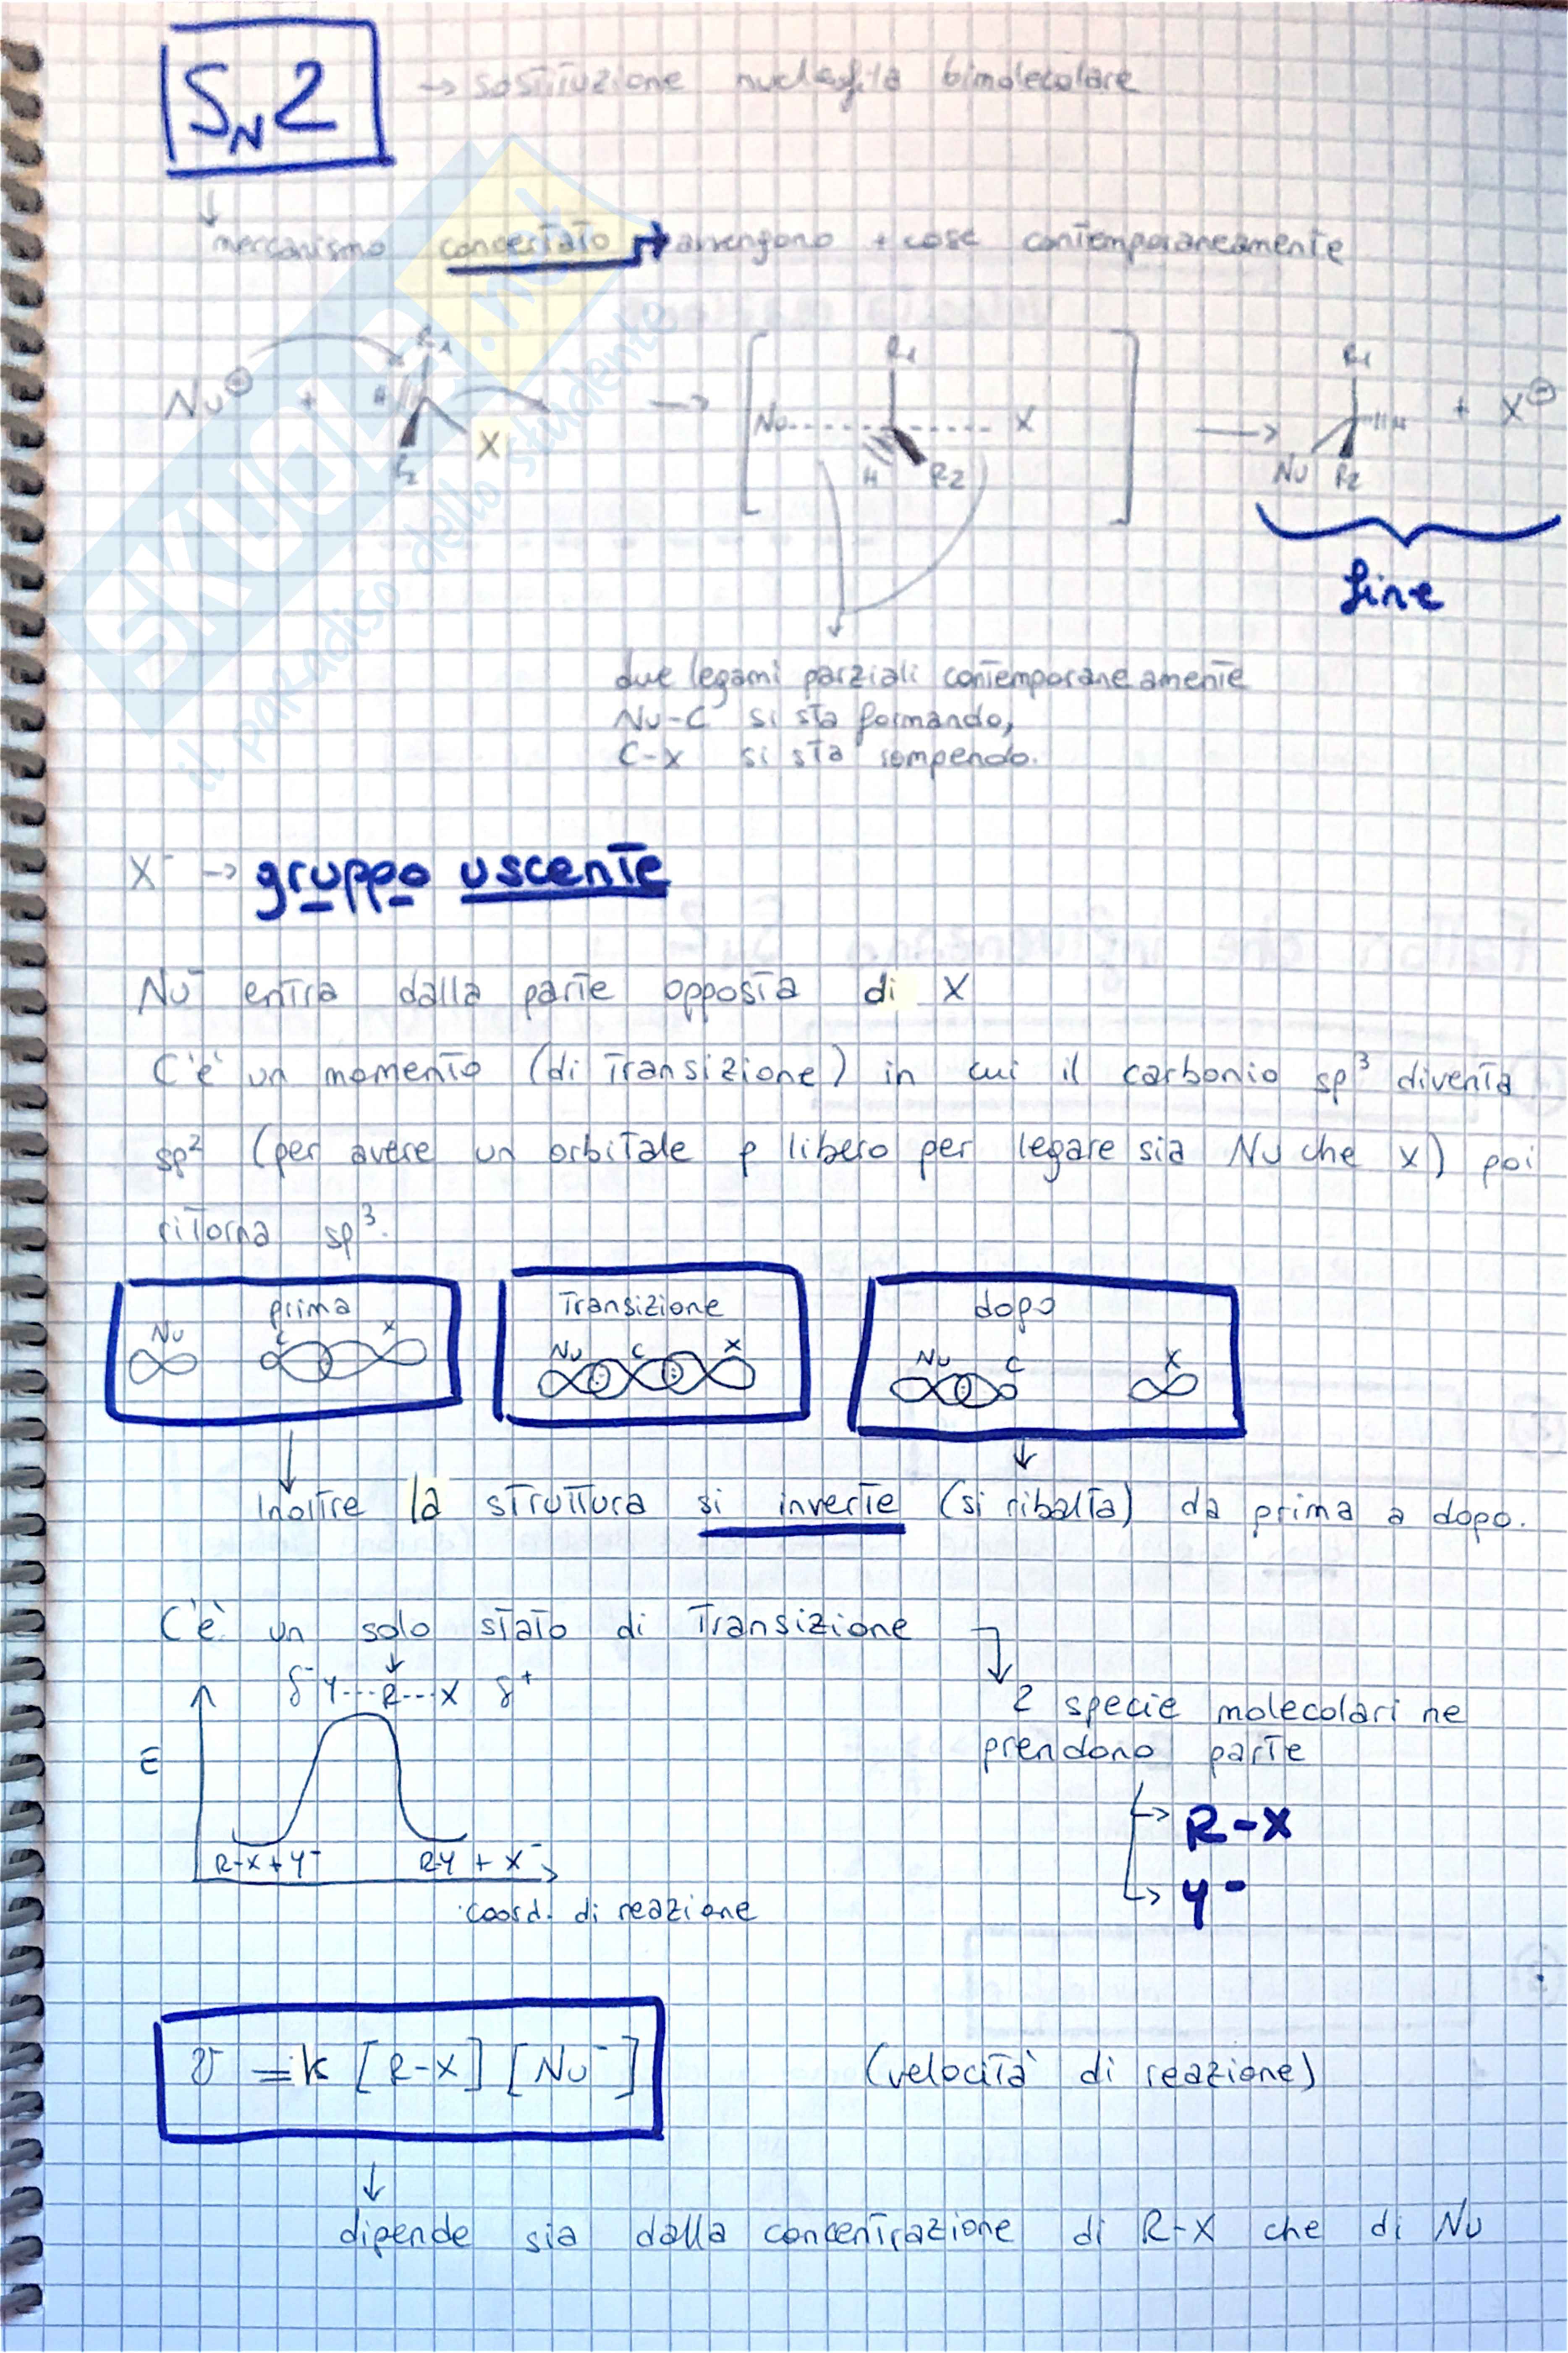 SN2 → sostituzione nucleofila bimolecolare
↓
meccanismo concertato → avvengono + cose contemporaneamente
Nu⊖ + R1 H R2 X → [ Nu------X R1 H R2 ] → R1 H Nu R2 + X⊖
fine
due legami parziali contemporaneamente
Nu-C si sta formando,
C-X si sta rompendo.
X⁻ → gruppo uscente
Nu⁻ entra dalla parte opposta di X
C'è un momento (di transizione) in cui il carbonio sp³ diventa
sp² (per avere un orbitale p libero per legare sia Nu che X) poi
ritorna sp³.
prima
Nu C X
Transizione
Nu C X
dopo
Nu C X
Inoltre la struttura si inverte (si ribalta) da prima a dopo.
C'è un solo stato di Transizione
δ⁻ Y---R---X δ⁺
E
R-X + Y⁻
RY + X⁻
coord. di reazione
2 specie molecolari ne
prendono parte
→ R-X
→ Y⁻
v = k [R-X] [Nu⁻] (velocità di reazione)
↓
dipende sia dalla concentrazione di R-X che di Nu
SKUOLA.net
il paradiso dello studente